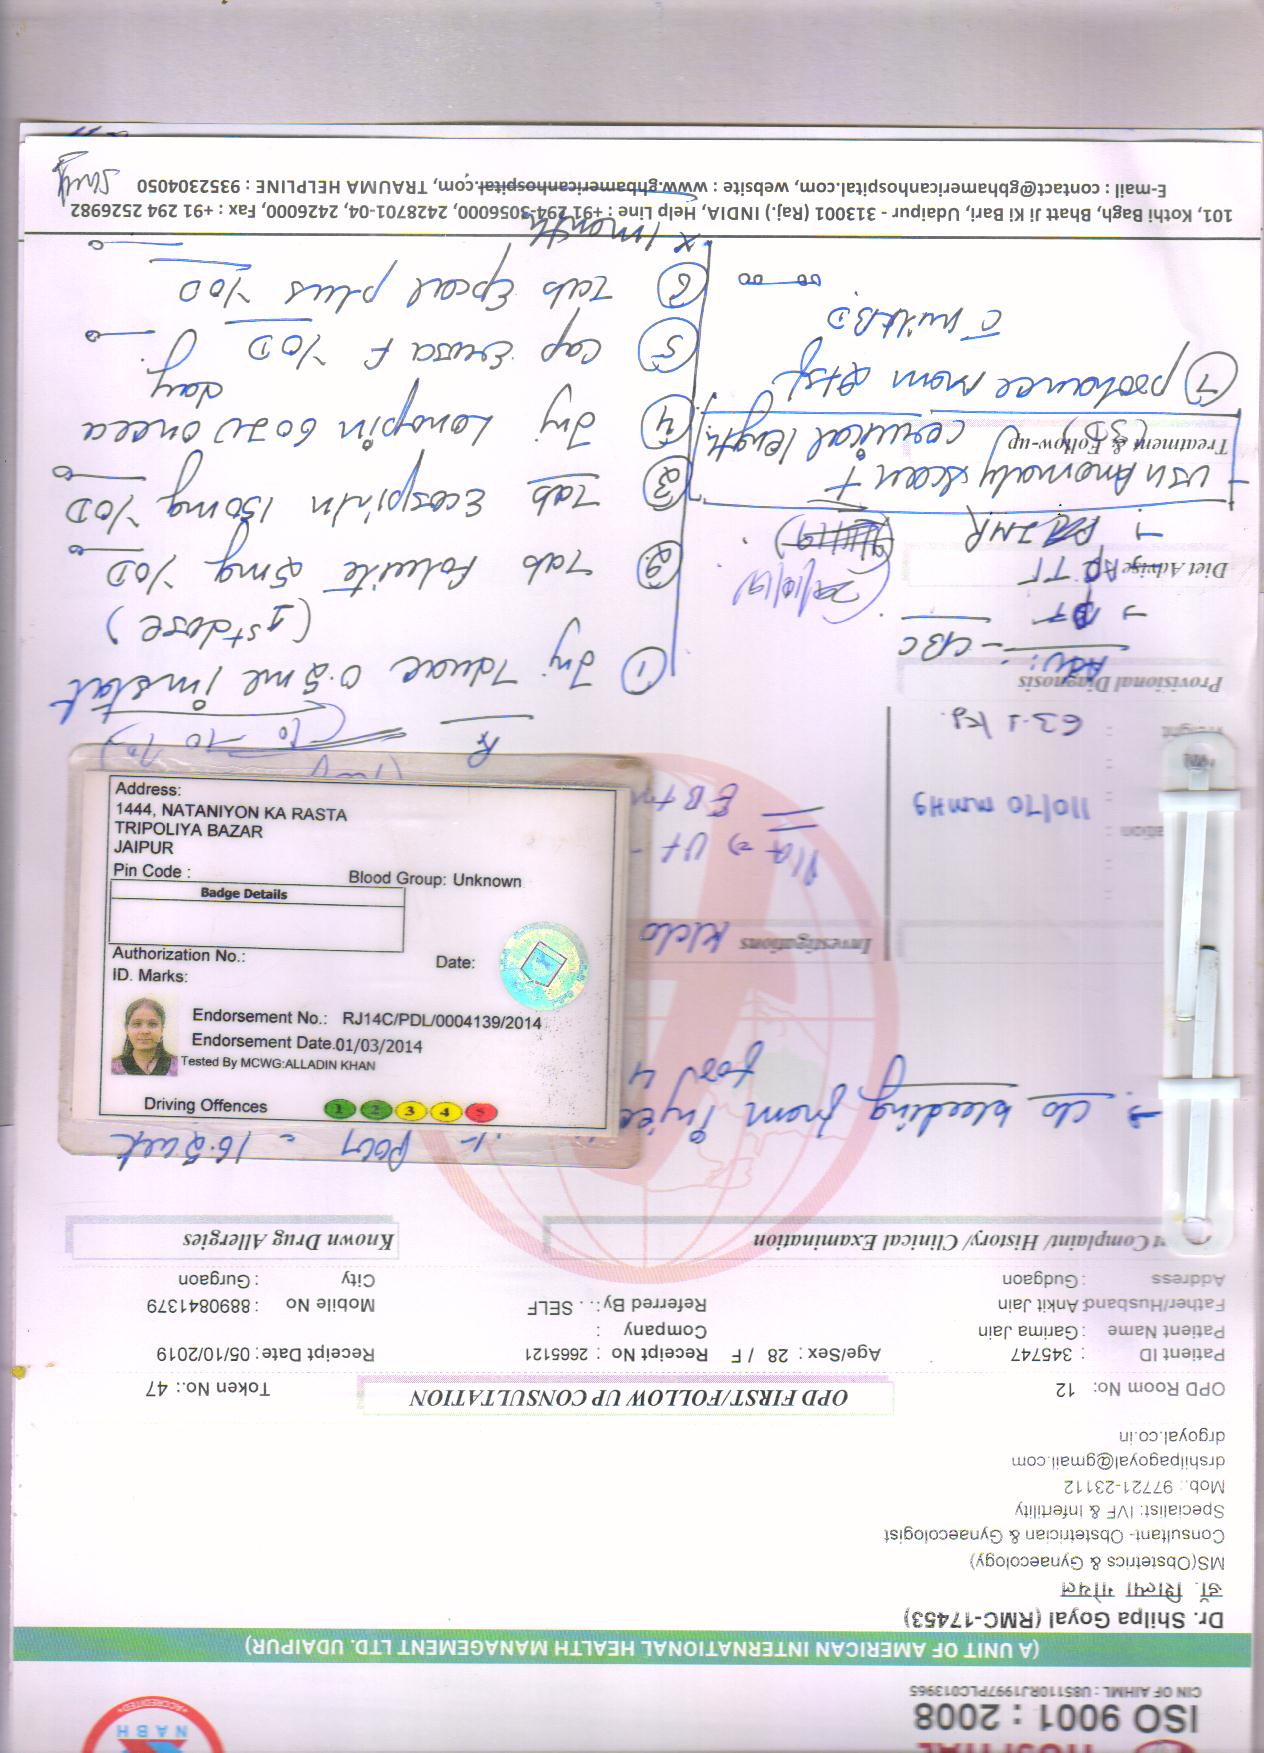 HOSPITAL
ISO 9001 : 2008
CIN OF AIHML : U85110RJ1997PLC013965
NABH
ACCREDITED
(A UNIT OF AMERICAN INTERNATIONAL HEALTH MANAGEMENT LTD. UDAIPUR)
Dr. Shilpa Goyal (RMC-17453)
डॉ. शिल्पा गोयल
MS(Obstetrics & Gynaecology)
Consultant- Obstetrician & Gynaecologist
Specialist: IVF & Infertility
Mob.: 97721-23112
drshilpagoyal@gmail.com
drgoyal.co.in
OPD Room No: 12
OPD FIRST/FOLLOW UP CONSULTATION
Token No.: 47
Patient ID : 345747
Age/Sex : 28 / F
Receipt No : 2665121
Receipt Date : 05/10/2019
Patient Name : Garima Jain
Company :
Father/Husband: Ankit Jain
Referred By : . . SELF
Mobile No : 8890841379
Address : Gudgaon
City : Gurgaon
t Complaint/ History/ Clinical Examination
Known Drug Allergies
POG = 16.5 wk
→ c/o bleeding from
for 4
Investigations
K/c/o
P/A ⇒ Ut
110/70 mmHg
63.1 kg.
Provisional Diagnosis
Adv: - CBC
→ BT
Diet Advise
APTT
→ PT INR
(22/10/19)
USG Anomaly scan +
Treatment & Follow-up
(3D) cervical length
⑦ protance mom
c milk BD
Rx
① Inj Tdvac 0.5 ml im stat
(1st dose)
② Tab Folvite 5mg 1/OD
③ Tab Ecosprin 150mg 1/OD
④ Inj Lonopin 60 IU once a
day
⑤ Cap 1/OD
⑥ Tab Epcal plus 1/OD
x 1 month
101, Kothi Bagh, Bhatt Ji Ki Bari, Udaipur - 313001 (Raj.) INDIA, Help Line : +91 294-3056000, 2428701-04, 2426000, Fax : +91 294 2526982
E-mail : contact@gbhamericanhospital.com, website : www.gbhamericanhospital.com, TRAUMA HELPLINE : 9352304050
Address:
1444, NATANIYON KA RASTA
TRIPOLIYA BAZAR
JAIPUR
Pin Code :
Blood Group: Unknown
Badge Details
Authorization No.:
Date:
ID. Marks:
Endorsement No.: RJ14C/PDL/0004139/2014
Endorsement Date.01/03/2014
Tested By MCWG:ALLADIN KHAN
Driving Offences
1 2 3 4 5